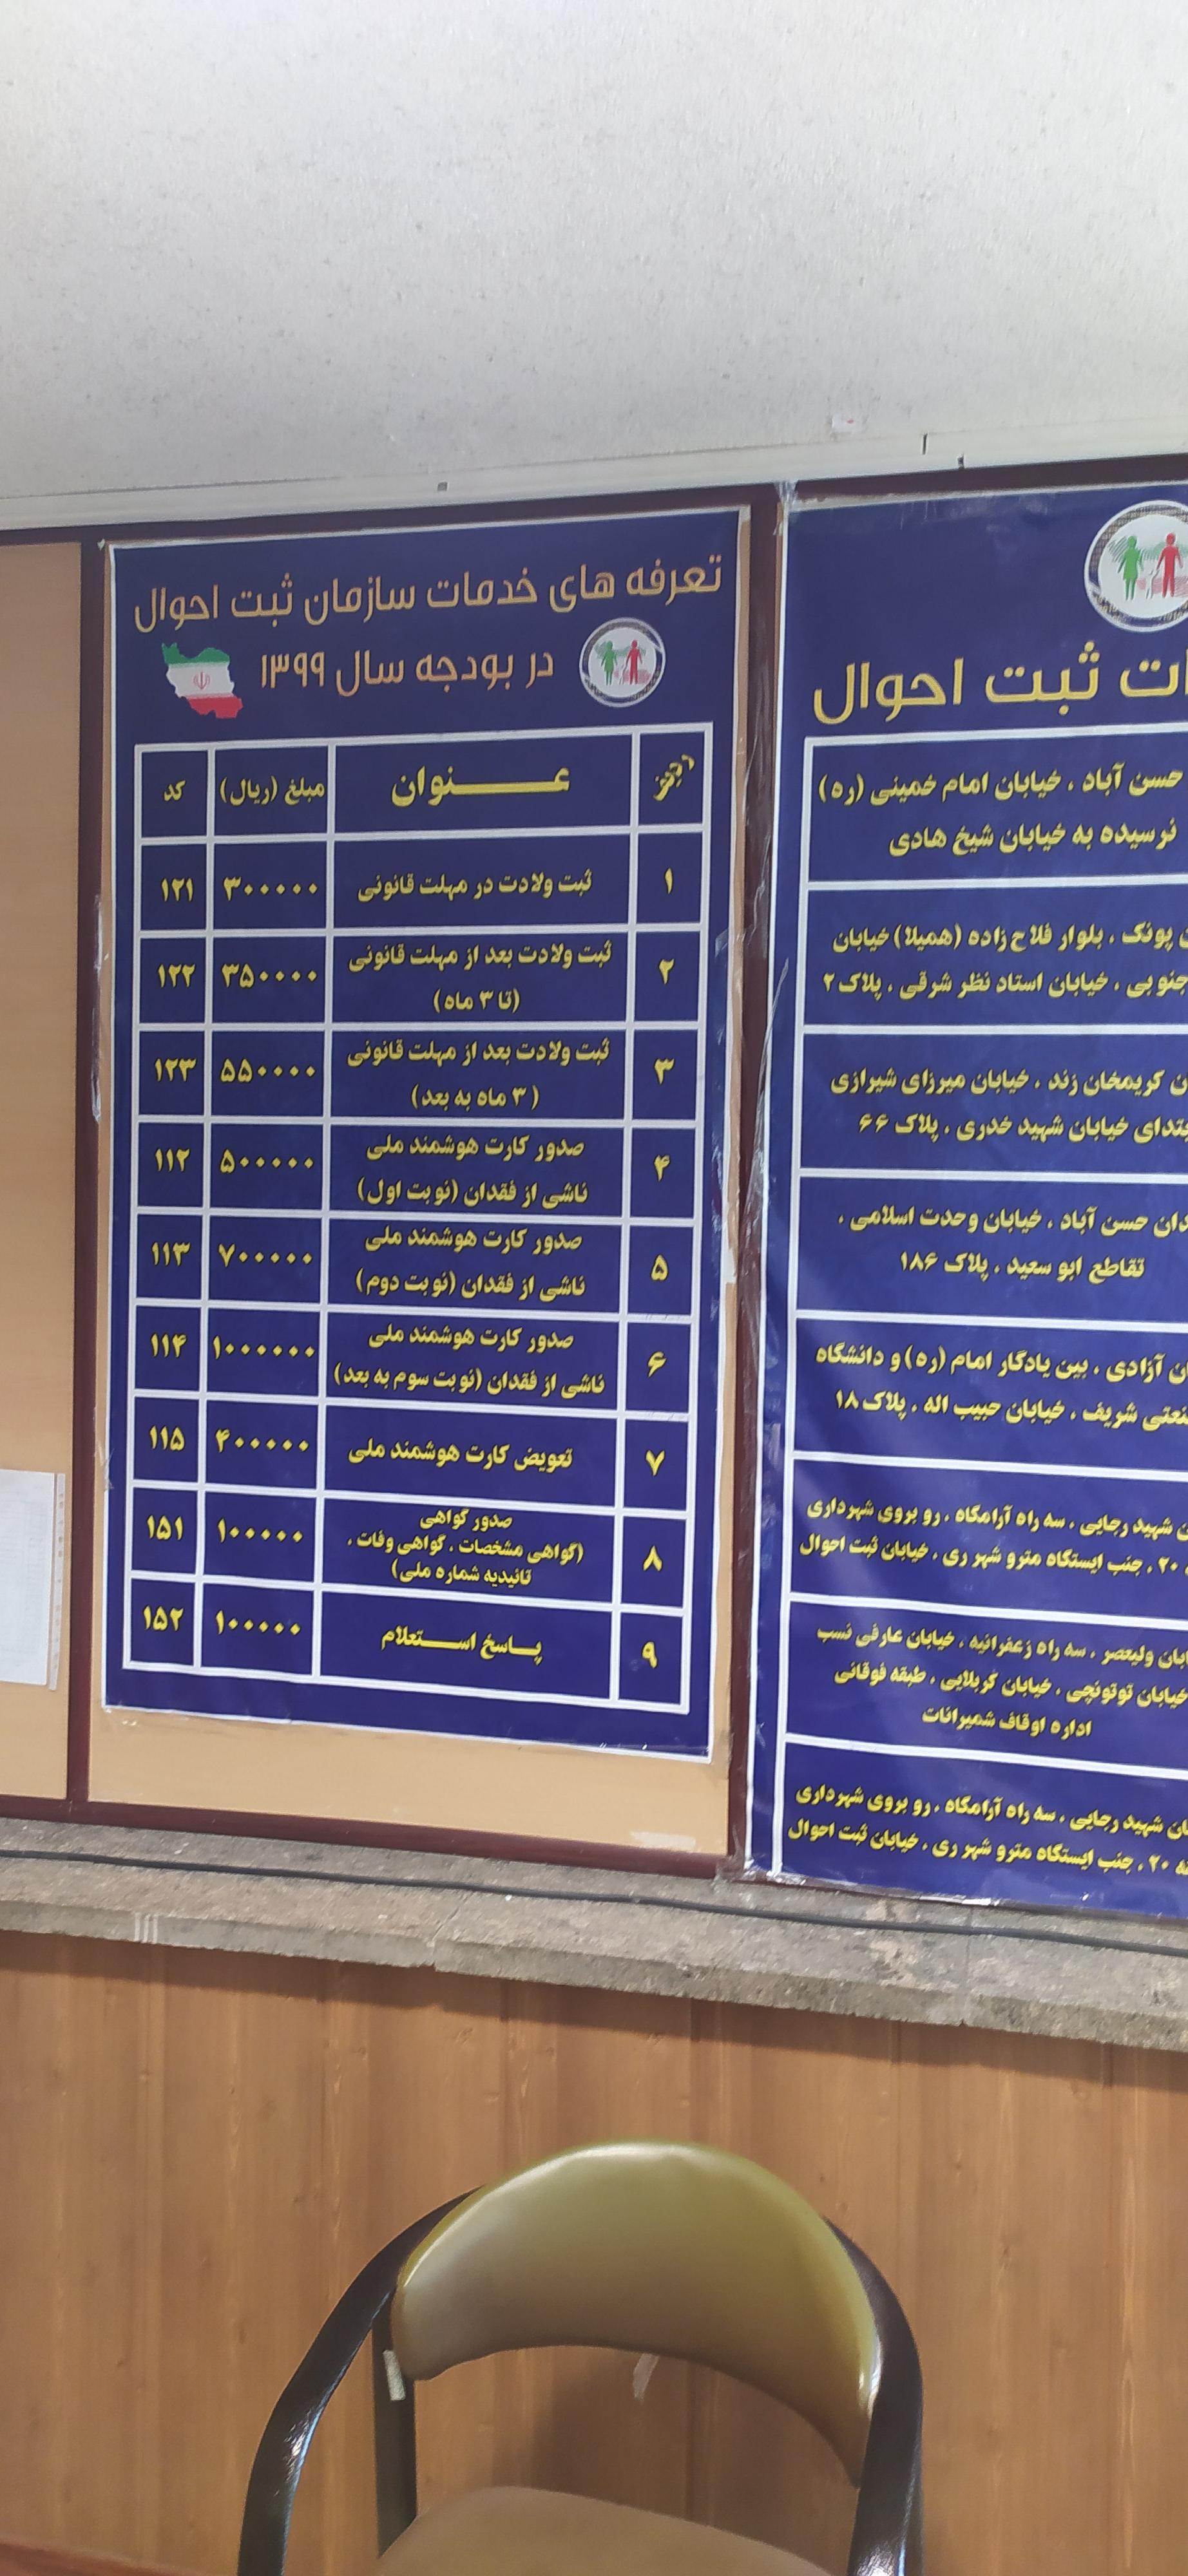 تعرفه های خدمات سازمان ثبت احوال
در بودجه سال ۱۳۹۹
ردیف عـــنوان مبلغ (ریال) کد
۱ ثبت ولادت در مهلت قانونی ۳۰۰۰۰۰ ۱۲۱
۲ ثبت ولادت بعد از مهلت قانونی
(تا ۳ ماه) ۳۵۰۰۰۰ ۱۲۲
۳ ثبت ولادت بعد از مهلت قانونی
(۳ ماه به بعد) ۵۵۰۰۰۰ ۱۲۳
۴ صدور کارت هوشمند ملی
ناشی از فقدان (نوبت اول) ۵۰۰۰۰۰ ۱۱۲
۵ صدور کارت هوشمند ملی
ناشی از فقدان (نوبت دوم) ۷۰۰۰۰۰ ۱۱۳
۶ صدور کارت هوشمند ملی
ناشی از فقدان (نوبت سوم به بعد) ۱۰۰۰۰۰۰ ۱۱۴
۷ تعویض کارت هوشمند ملی ۴۰۰۰۰۰ ۱۱۵
۸ صدور گواهی
(گواهی مشخصات ، گواهی وفات ،
تائیدیه شماره ملی) ۱۰۰۰۰۰ ۱۵۱
۹ پاسخ استعلام ۱۰۰۰۰۰ ۱۵۲
ثبت احوال
حسن آباد ، خیابان امام خمینی (ره)
نرسیده به خیابان شیخ هادی
پونک ، بلوار فلاح زاده (همیلا) خیابان
جنوبی ، خیابان استاد نظر شرقی ، پلاک ۲
کریمخان زند ، خیابان میرزای شیرازی
خیابان شهید خدری ، پلاک ۶۶
حسن آباد ، خیابان وحدت اسلامی ،
تقاطع ابو سعید ، پلاک ۱۸۶
آزادی ، بین یادگار امام (ره) و دانشگاه
شریف ، خیابان حبیب اله ، پلاک ۱۸
شهید رجایی ، سه راه آرامگاه ، رو بروی شهرداری
۲۰ ، جنب ایستگاه مترو شهر ری ، خیابان ثبت احوال
ولیعصر ، سه راه زعفرانیه ، خیابان عارفی نسب
خیابان توتونچی ، خیابان کربلایی ، طبقه فوقانی
اداره اوقاف شمیرانات
شهید رجایی ، سه راه آرامگاه ، رو بروی شهرداری
۲۰ ، جنب ایستگاه مترو شهر ری ، خیابان ثبت احوال